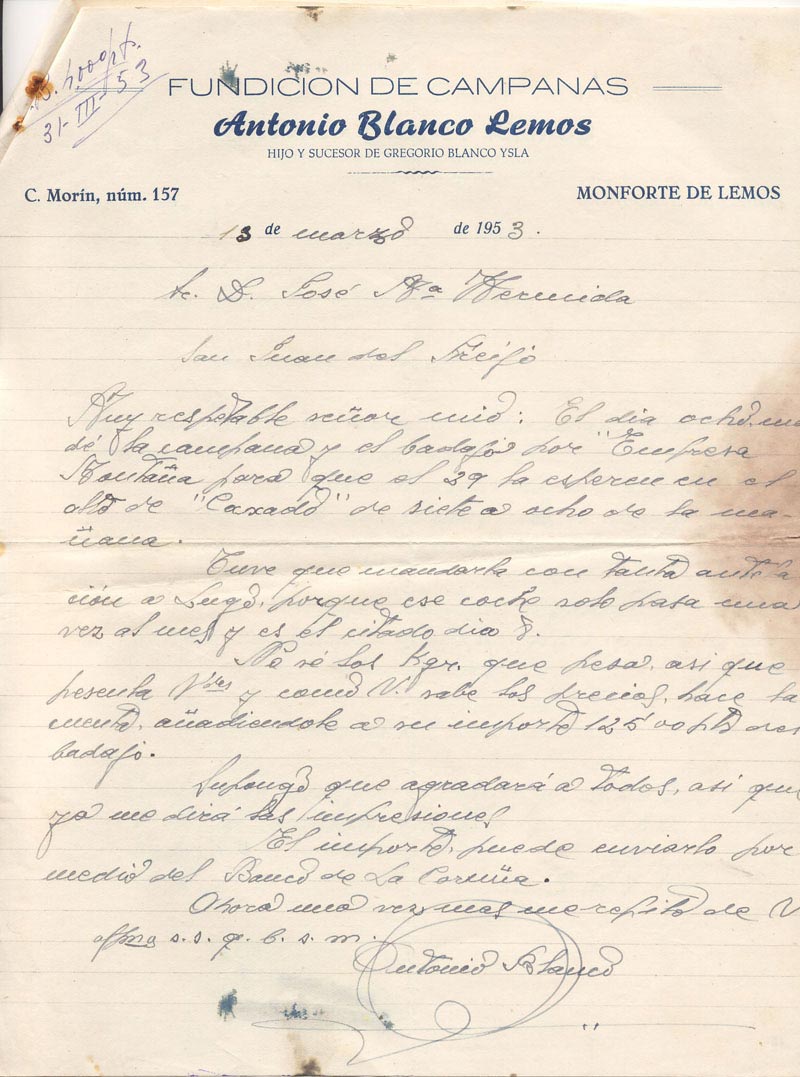 31-III-53
FUNDICION DE CAMPANAS
Antonio Blanco Lemos
HIJO Y SUCESOR DE GREGORIO BLANCO YSLA
C. Morín, núm. 157
MONFORTE DE LEMOS
13 de marzo de 1953.
Sr. D. José Mª Hermida
San Juan del Freijo
Muy respetable señor mio: El dia ocho, man
dé la campana y el badajo por "Empresa
Montaña para que el 29 la esperen en el
alto de "Caxado" de siete a ocho de la ma-
ñana.
Tuve que mandarla con tanta antela
ción a Lugo, porque ese coche solo pasa una
vez al mes y es el citado dia 8.
No sé los Kgr. que pesa, asi que
pesenla Vdes y como V. sabe los precios, hace la
mento, añadiendole a su importe 125'00 pts del
badajo.
Supongo que agradará a todos, asi que
ya me dirá las impresiones
El importe, puede enviarlo por
medio del Banco de La Coruña.
Ahora una vez mas me repito de V.
affmo s.s.q.b.s.m.
Antonio Blanco